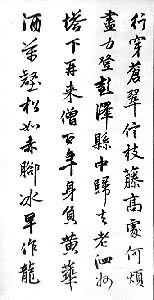 行穿蒼翠枝藤高處何煩
盡力登彭澤縣中歸去老泗州
塔下再來僧百年身負黃華
酒萬壑松如赤腳冰早作龍